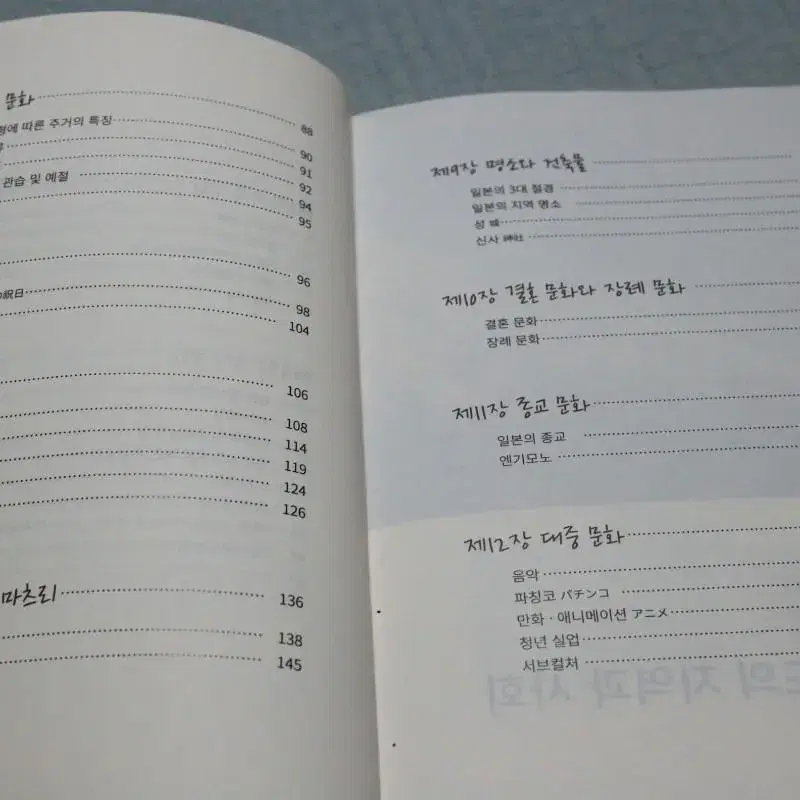 문화 88
형에 따른 주거의 특징 90
91
관습 및 예절 92
94
95
96
祝日 98
104
106
108
114
119
124
126
마츠리 136
138
145
제9장 명소와 건축물
일본의 3대 절경
일본의 지역 명소
성 城
신사 神社
제10장 결혼 문화와 장례 문화
결혼 문화
장례 문화
제11장 종교 문화
일본의 종교
엔기모노
제12장 대중 문화
음악
파칭코 パチンコ
만화·애니메이션 アニメ
청년 실업
서브컬처
의 지역과 사회